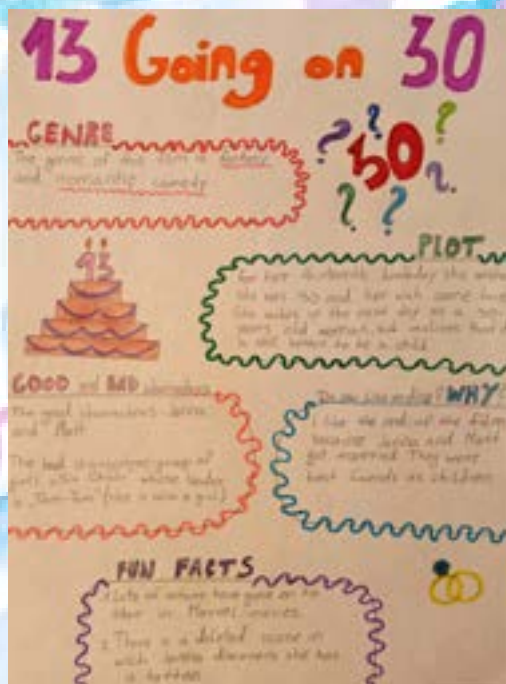 13 Going on 30
GENRE
The genre of this film is fantasy
and romantic comedy
30
? ? ? ? ? ?
13
PLOT
For her thirteenth birthday she
she was 30 and her wish came
She wakes up the next day as a 30
years old woman, but realizes that
is still better to be a child
GOOD and BAD characters
The good characters Jenna
and Matt
The bad characters group of
girls „Six Chicks" whose leader
is „Tom-Tom" (she is also a girl)
Do you like ending? WHY?
I like the end of the film
because Jenna and Matt
got married They were
best friends as children
FUN FACTS
1. Lots of actors have gone on to
star in Marvel movies
2. There is a deleted scene in
wich Jenna discovers she has
a tattoo